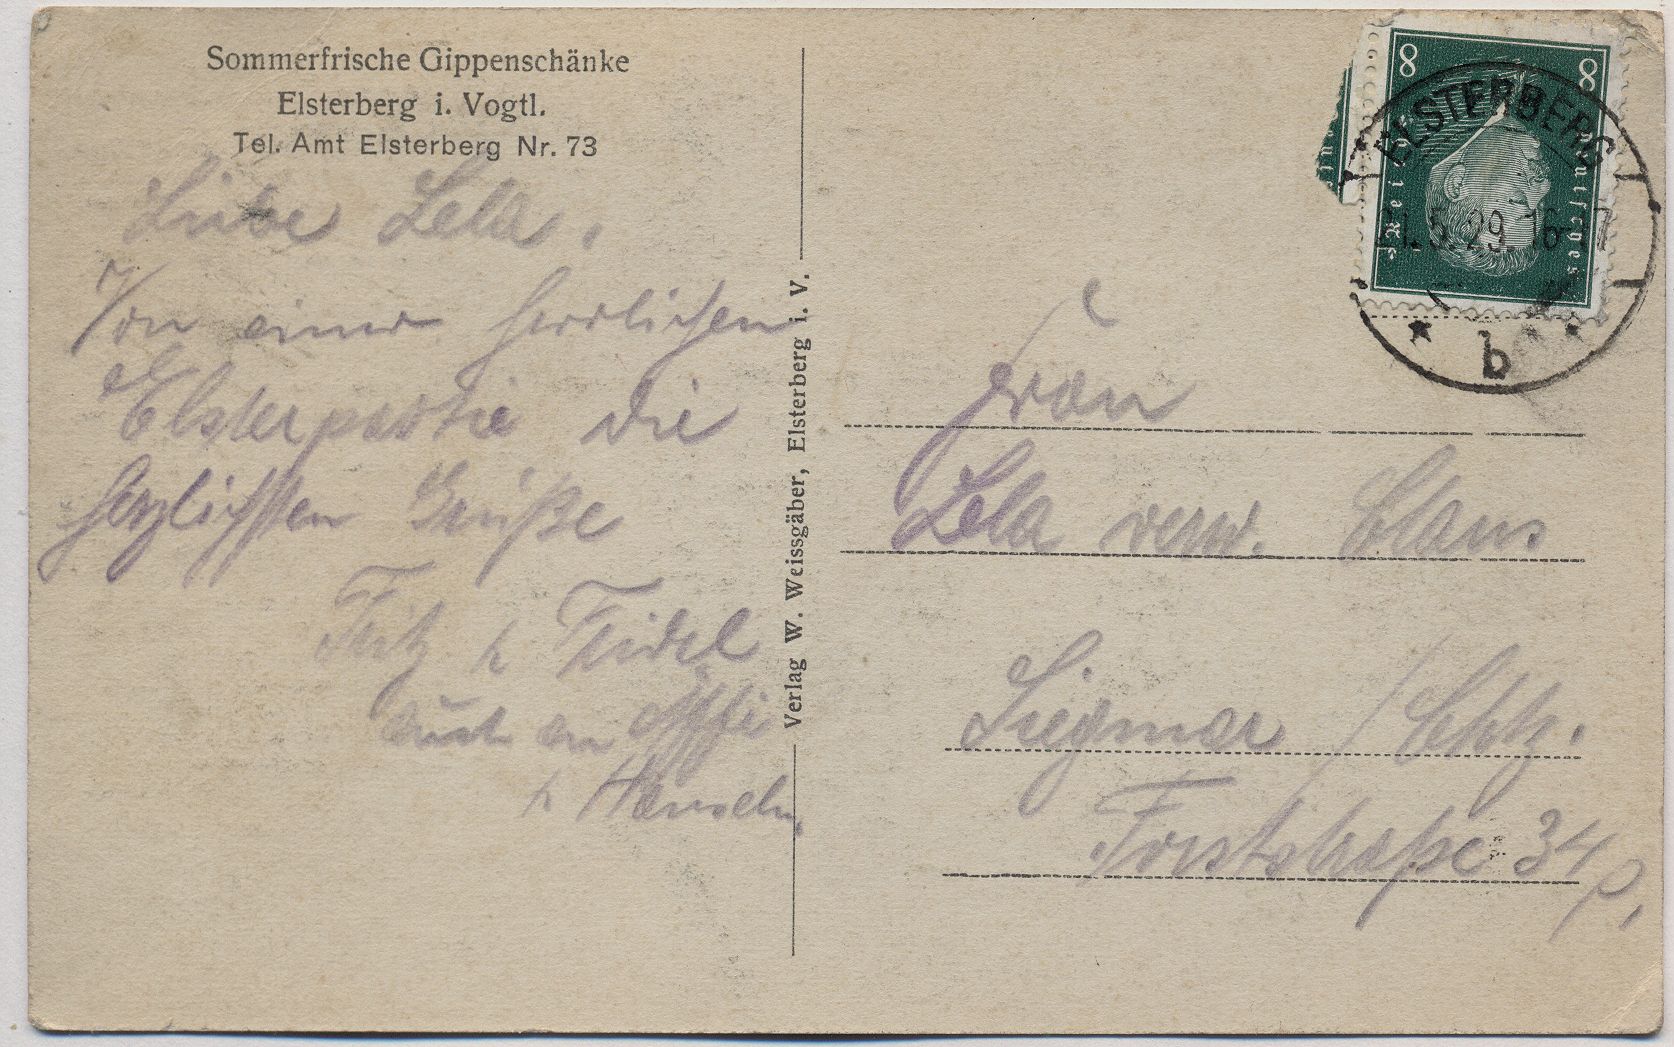 Sommerfrische Gippenschänke
Elsterberg i. Vogtl.
Tel. Amt Elsterberg Nr. 73
Liebe Lela,
Von einer herrlichen
Elsterpartie die
herzlichsten Grüße
Fritz u
auch an
u
Verlag W. Weissgäber, Elsterberg i. V.
8 8
Deutsches Reich
ELSTERBERG
21.5.29. 16-17
* b *
Frau
Lela verw. Claus
Siegmar / Chtz.
Forststraße 34